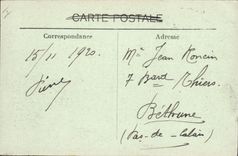 CARTE POSTALE
Correspondance
Adresse
15/11 1920.
Mr Jean Roncin
7 Bard Thiers
Béthune
(Pas-de-Calais)